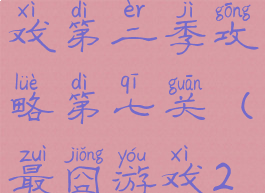 xì dì èr jì gōng
戏第二季攻
lüè dì qī guān
略第七关（
zuì jiǒng yóu xì
最囧游戏2